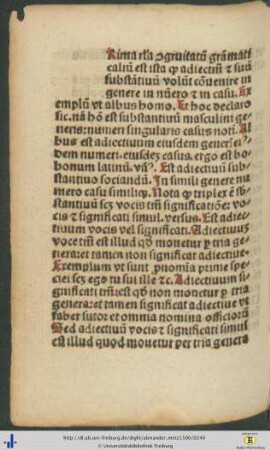 Rima rła ↄgruitatū grāmati
caliū est ista ꝙ adiectiuū ⁊ suū
substātiuū volūt cōuenire in
genere in nūero ⁊ in casu. Ex
emplū vt albus homo. Et hoc declaro
sic. nā hō est substantiuū masculini ge
neris: numeri singularis casus noti. Al
bus est adiectiuum eiusdem generis ei⁹
dem numeri. eiusdez casus. ergo est bo
bonum latinū. Est adiectiuū sub
stantiuo sociandū. In simili genere nu
mero casu similiqꝫ. Nota ꝙ triplex ē sb
stantiuū sez vocis tm̄ significatiōeꝫ vo
cis ⁊ significati simul. versus. Est adiec
tiuum vocis vel significati. Adiectiuuꝫ
voce tm̄ est illud qd̄ monetur ꝑ tria ge
nera: et tamen non significat adiectiue
Exemplum vt sunt ꝓnomia prime spe
ciei sez ego tu sui ille ⁊c. Adiectiuum si
gnificati tm̄: est qd̄ non monetur ꝑ tria
genera: et tamen significat adiectiue vt
faber sutor et omnia nomina officiorū
Sed adiectiuū vocis ⁊ significati simul
est illud quod mouetur per tria genera
http://dl.ub.uni-freiburg.de/diglit/alexander_metz1500/0049
© Universitätsbibliothek Freiburg